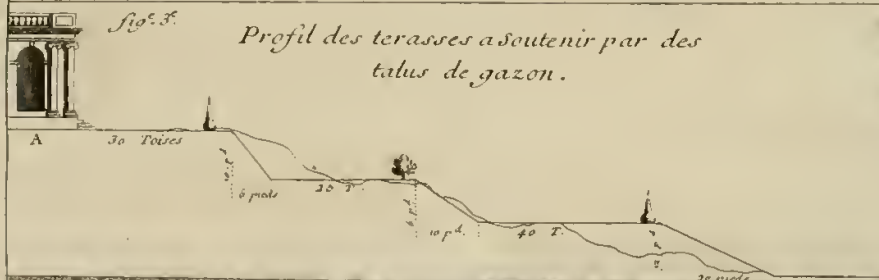 fig.e 3.e
Profil des terasses a Soutenir par des
talus de gazon.
A
30 Toises
6 pieds
20 T.
10 p.d.
40 T.
20 pieds